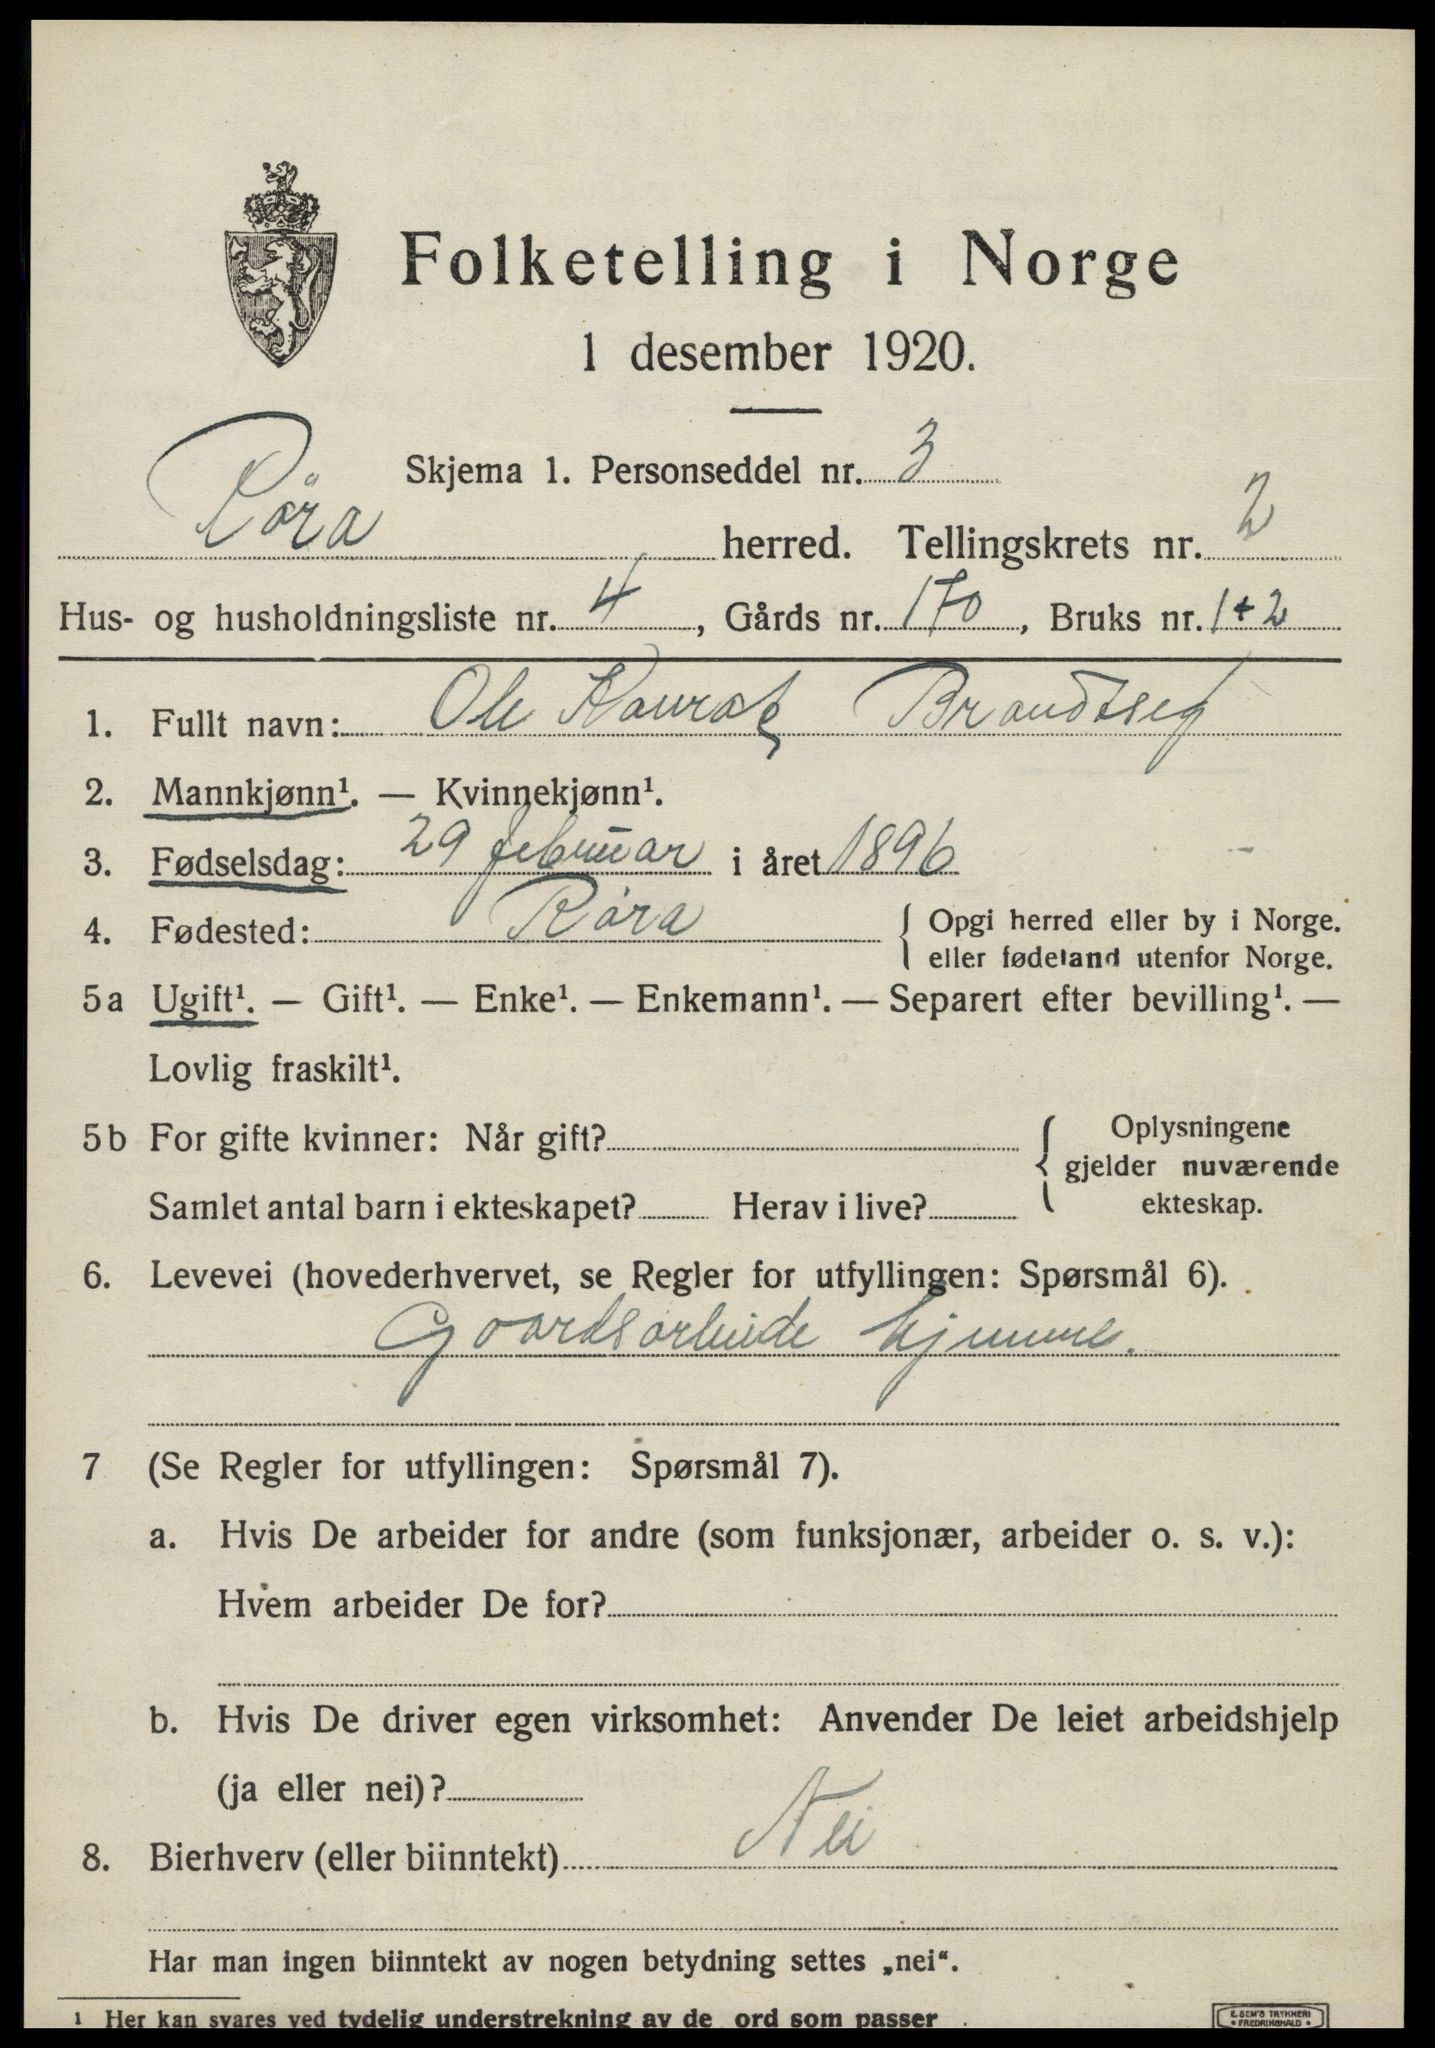 Folketelling i Norge
1 desember 1920.
Skjema 1. Personseddel nr. 3
Röra herred. Tellingskrets nr. 2
Hus- og husholdningsliste nr. 4, Gårds nr. 170, Bruks nr. 1+2
1. Fullt navn: Ole Konrad Brandtseg
2. Mannkjønn¹. — Kvinnekjønn¹.
3. Fødselsdag: 29 februar i året 1896
4. Fødested: Røra { Opgi herred eller by i Norge.
eller fødeland utenfor Norge.
5a Ugift¹. — Gift¹. — Enke¹. — Enkemann¹. — Separert efter bevilling¹. —
Lovlig fraskilt¹.
5b For gifte kvinner: Når gift? { Oplysningene
gjelder nuværende
Samlet antal barn i ekteskapet? Herav i live? ekteskap.
6. Levevei (hovederhvervet, se Regler for utfyllingen: Spørsmål 6).
Gaardsarbeide hjemme.
7 (Se Regler for utfyllingen: Spørsmål 7).
a. Hvis De arbeider for andre (som funksjonær, arbeider o. s. v.):
Hvem arbeider De for?
b. Hvis De driver egen virksomhet: Anvender De leiet arbeidshjelp
(ja eller nei)?
8. Bierhverv (eller biinntekt) Nei
Har man ingen biinntekt av nogen betydning settes „nei“.
¹ Her kan svares ved tydelig understrekning av de ord som passer
E. SEM'S TRYKKERI
• FREDRIKSHALD •